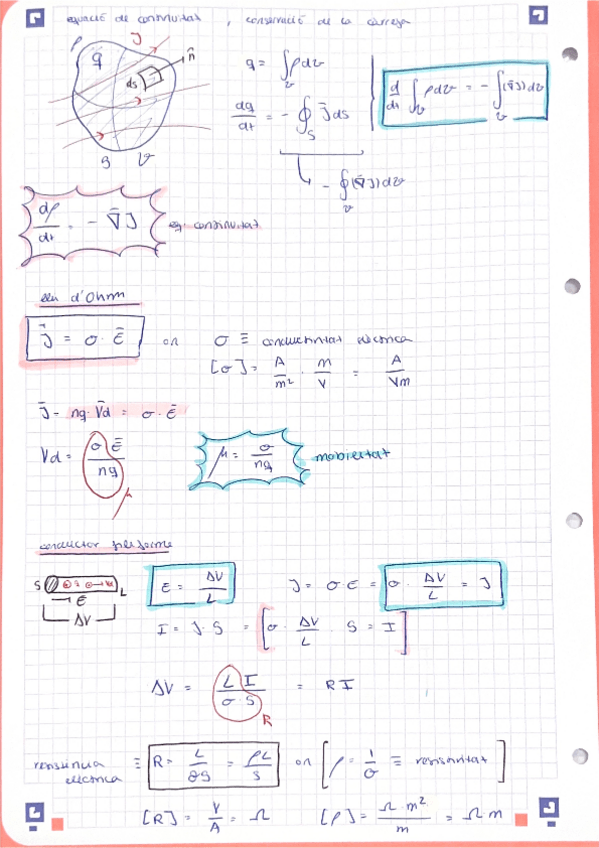 equació de continuitat, conservació de la càrrega
ρ J
q n̂
ds
S V
q = ∫_v ρ dv
dq/dt = - ∮_S J̄ ds
- ∮_v (∇̄J) dv
d/dt ∫_v ρ dv = - ∫_v (∇̄J) dv
dρ/dt = - ∇̄ J̄ eq. continuitat
llei d'Ohm
J̄ = σ · Ē on σ ≡ conductivitat elèctrica
[σ] = A/m² · m/V = A/Vm
J̄ = nq · V̄d = σ · Ē
Vd = σ Ē/nq μ
μ = σ/nq mobilitat
conductor filiforme
S L
E
ΔV
E = ΔV/L J = σ · E = σ · ΔV/L = J
I = J · S = [σ · ΔV/L · S = I]
ΔV = L I/σ S = R I
R
resistència elèctrica ≡ R = L/σS = ρL/S on [ρ = 1/σ ≡ resistivitat]
[R] = V/A = Ω [ρ] = Ω · m²/m = Ω m